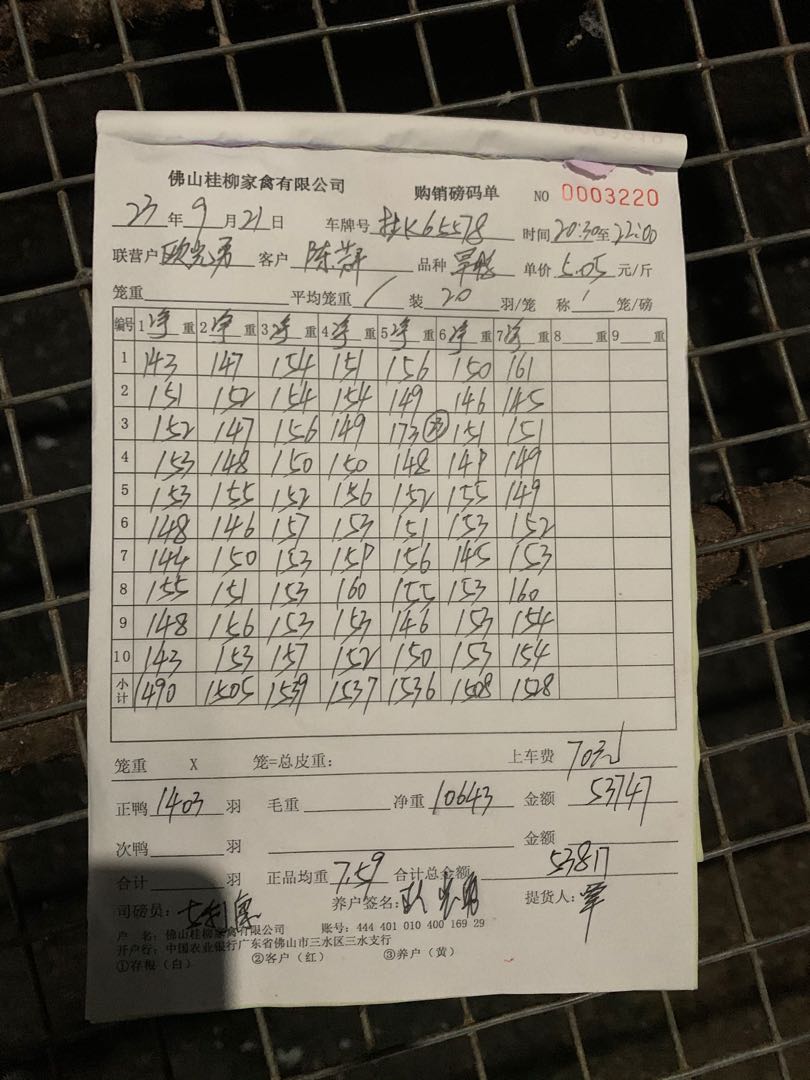 佛山桂柳家禽有限公司 购销磅码单 NO 0003220
23 年 9 月 21 日 车牌号 桂K65578 时间 20:30 至 22:00
联营户 欧 客户 陈 品种 单价 5.05 元/斤
笼重 平均笼重 / 装 20 羽/笼 称 1 笼/磅
编号 1 净 重 2 净 重 3 净 重 4 净 重 5 净 重 6 净 重 7 净 重 8 重 9 重
1 143 147 154 151 156 150 161
2 151 152 154 154 149 146 145
3 152 147 156 149 173 23 151 151
4 153 148 150 150 148 149 149
5 153 155 152 156 152 155 149
6 148 146 157 153 151 153 152
7 144 150 153 159 156 145 153
8 155 151 153 160 155 153 160
9 148 156 153 153 146 153 154
10 143 153 157 152 150 153 154
小计 1490 1505 1539 1537 1536 1508 1528
笼重 X 笼=总皮重: 上车费 70元
正鸭 1403 羽 毛重 净重 10643 金额 53747
次鸭 羽 金额
合计 羽 正品均重 7.59 合计总金额 53817
司磅员: 养户签名: 提货人:
户 名: 佛山桂柳家禽有限公司 账号: 444 401 010 400 169 29
开户行: 中国农业银行广东省佛山市三水区三水支行
①存根(白) ②客户(红) ③养户(黄)